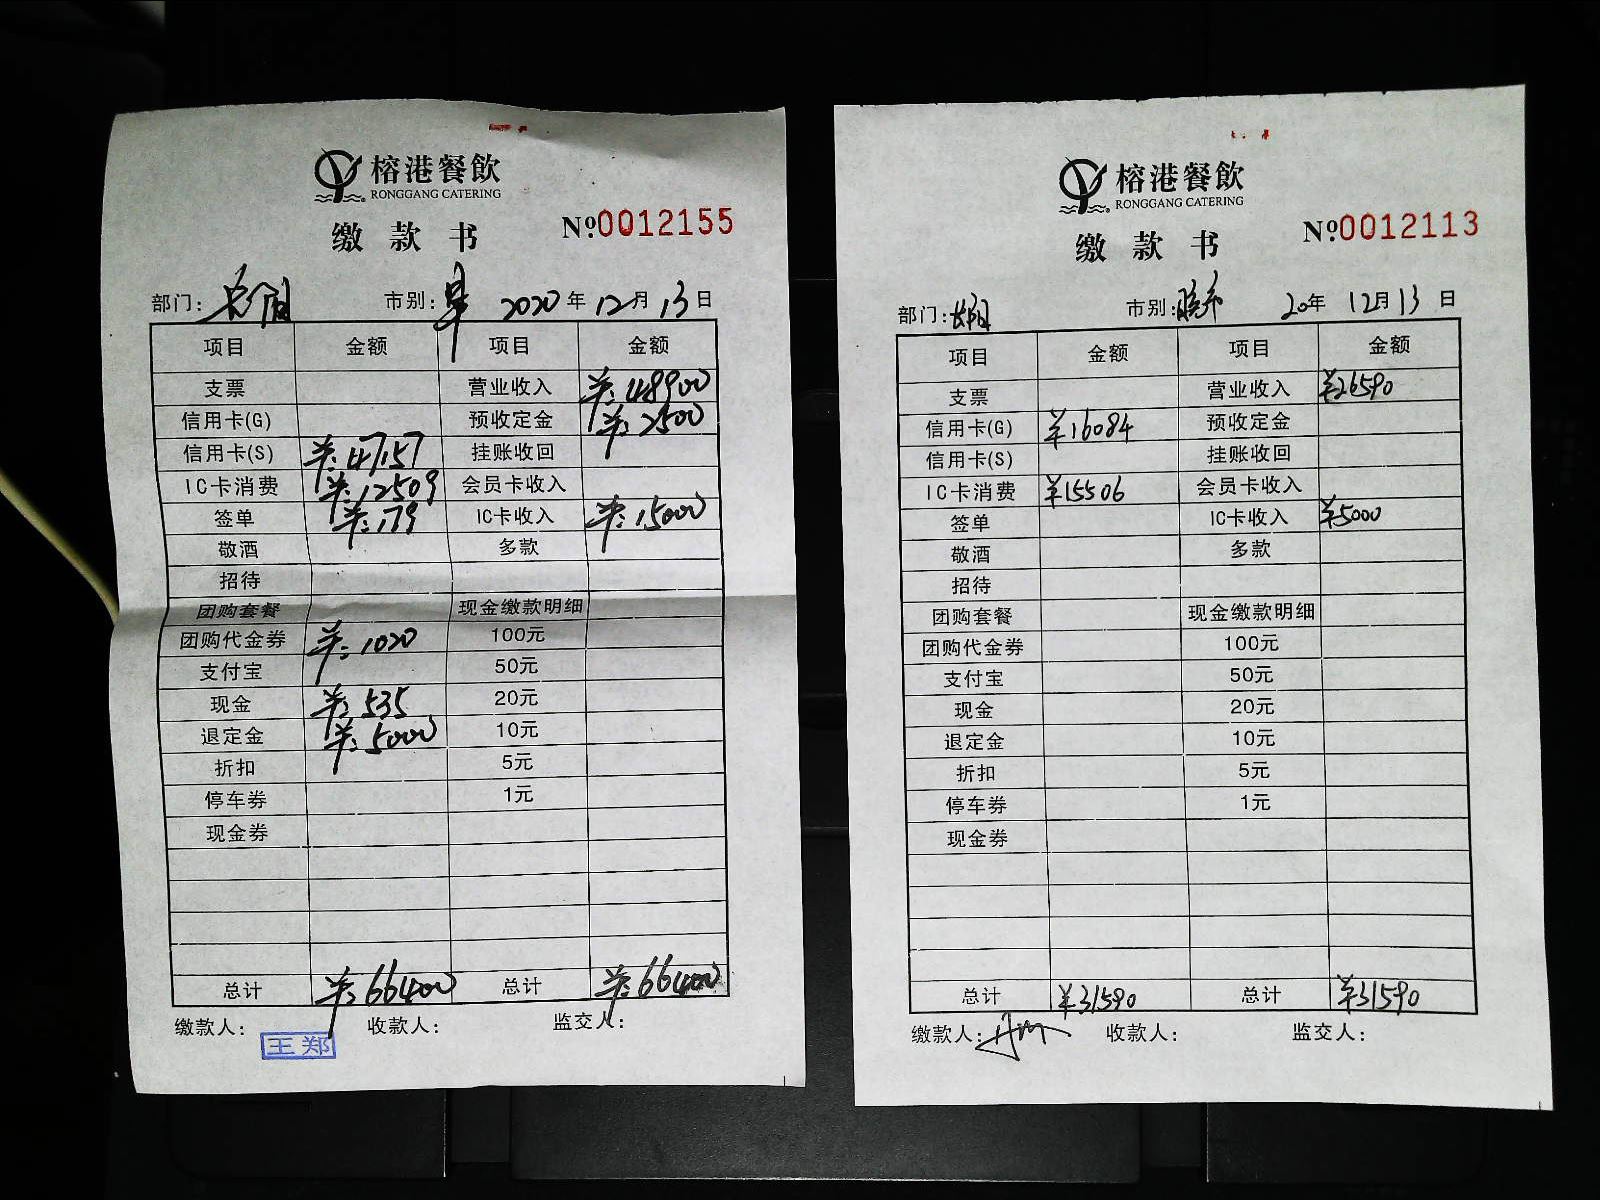 榕港餐飲
RONGGANG CATERING
缴款书 №0012155
部门: 市别: 早 2020年12月13日
项目 金额 项目 金额
支票 营业收入 ¥:48900
信用卡(G) 预收定金 ¥:2500
信用卡(S) ¥:47157 挂账收回
IC卡消费 ¥:12509 会员卡收入
签单 ¥:179 IC卡收入 ¥:15000
敬酒 多款
招待
团购套餐 现金缴款明细
团购代金券 ¥:1020 100元
支付宝 50元
现金 ¥:535 20元
退定金 ¥:5000 10元
折扣 5元
停车券 1元
现金券
总计 ¥:66400 总计 ¥:66400
缴款人: 王郑 收款人: 监交人:
榕港餐飲
RONGGANG CATERING
缴款书 №0012113
部门: 市别: 晚市 20年12月13日
项目 金额 项目 金额
支票 营业收入 ¥26590
信用卡(G) ¥16084 预收定金
信用卡(S) 挂账收回
IC卡消费 ¥15506 会员卡收入
签单 IC卡收入 ¥5000
敬酒 多款
招待
团购套餐 现金缴款明细
团购代金券 100元
支付宝 50元
现金 20元
退定金 10元
折扣 5元
停车券 1元
现金券
总计 ¥31590 总计 ¥31590
缴款人: 收款人: 监交人: